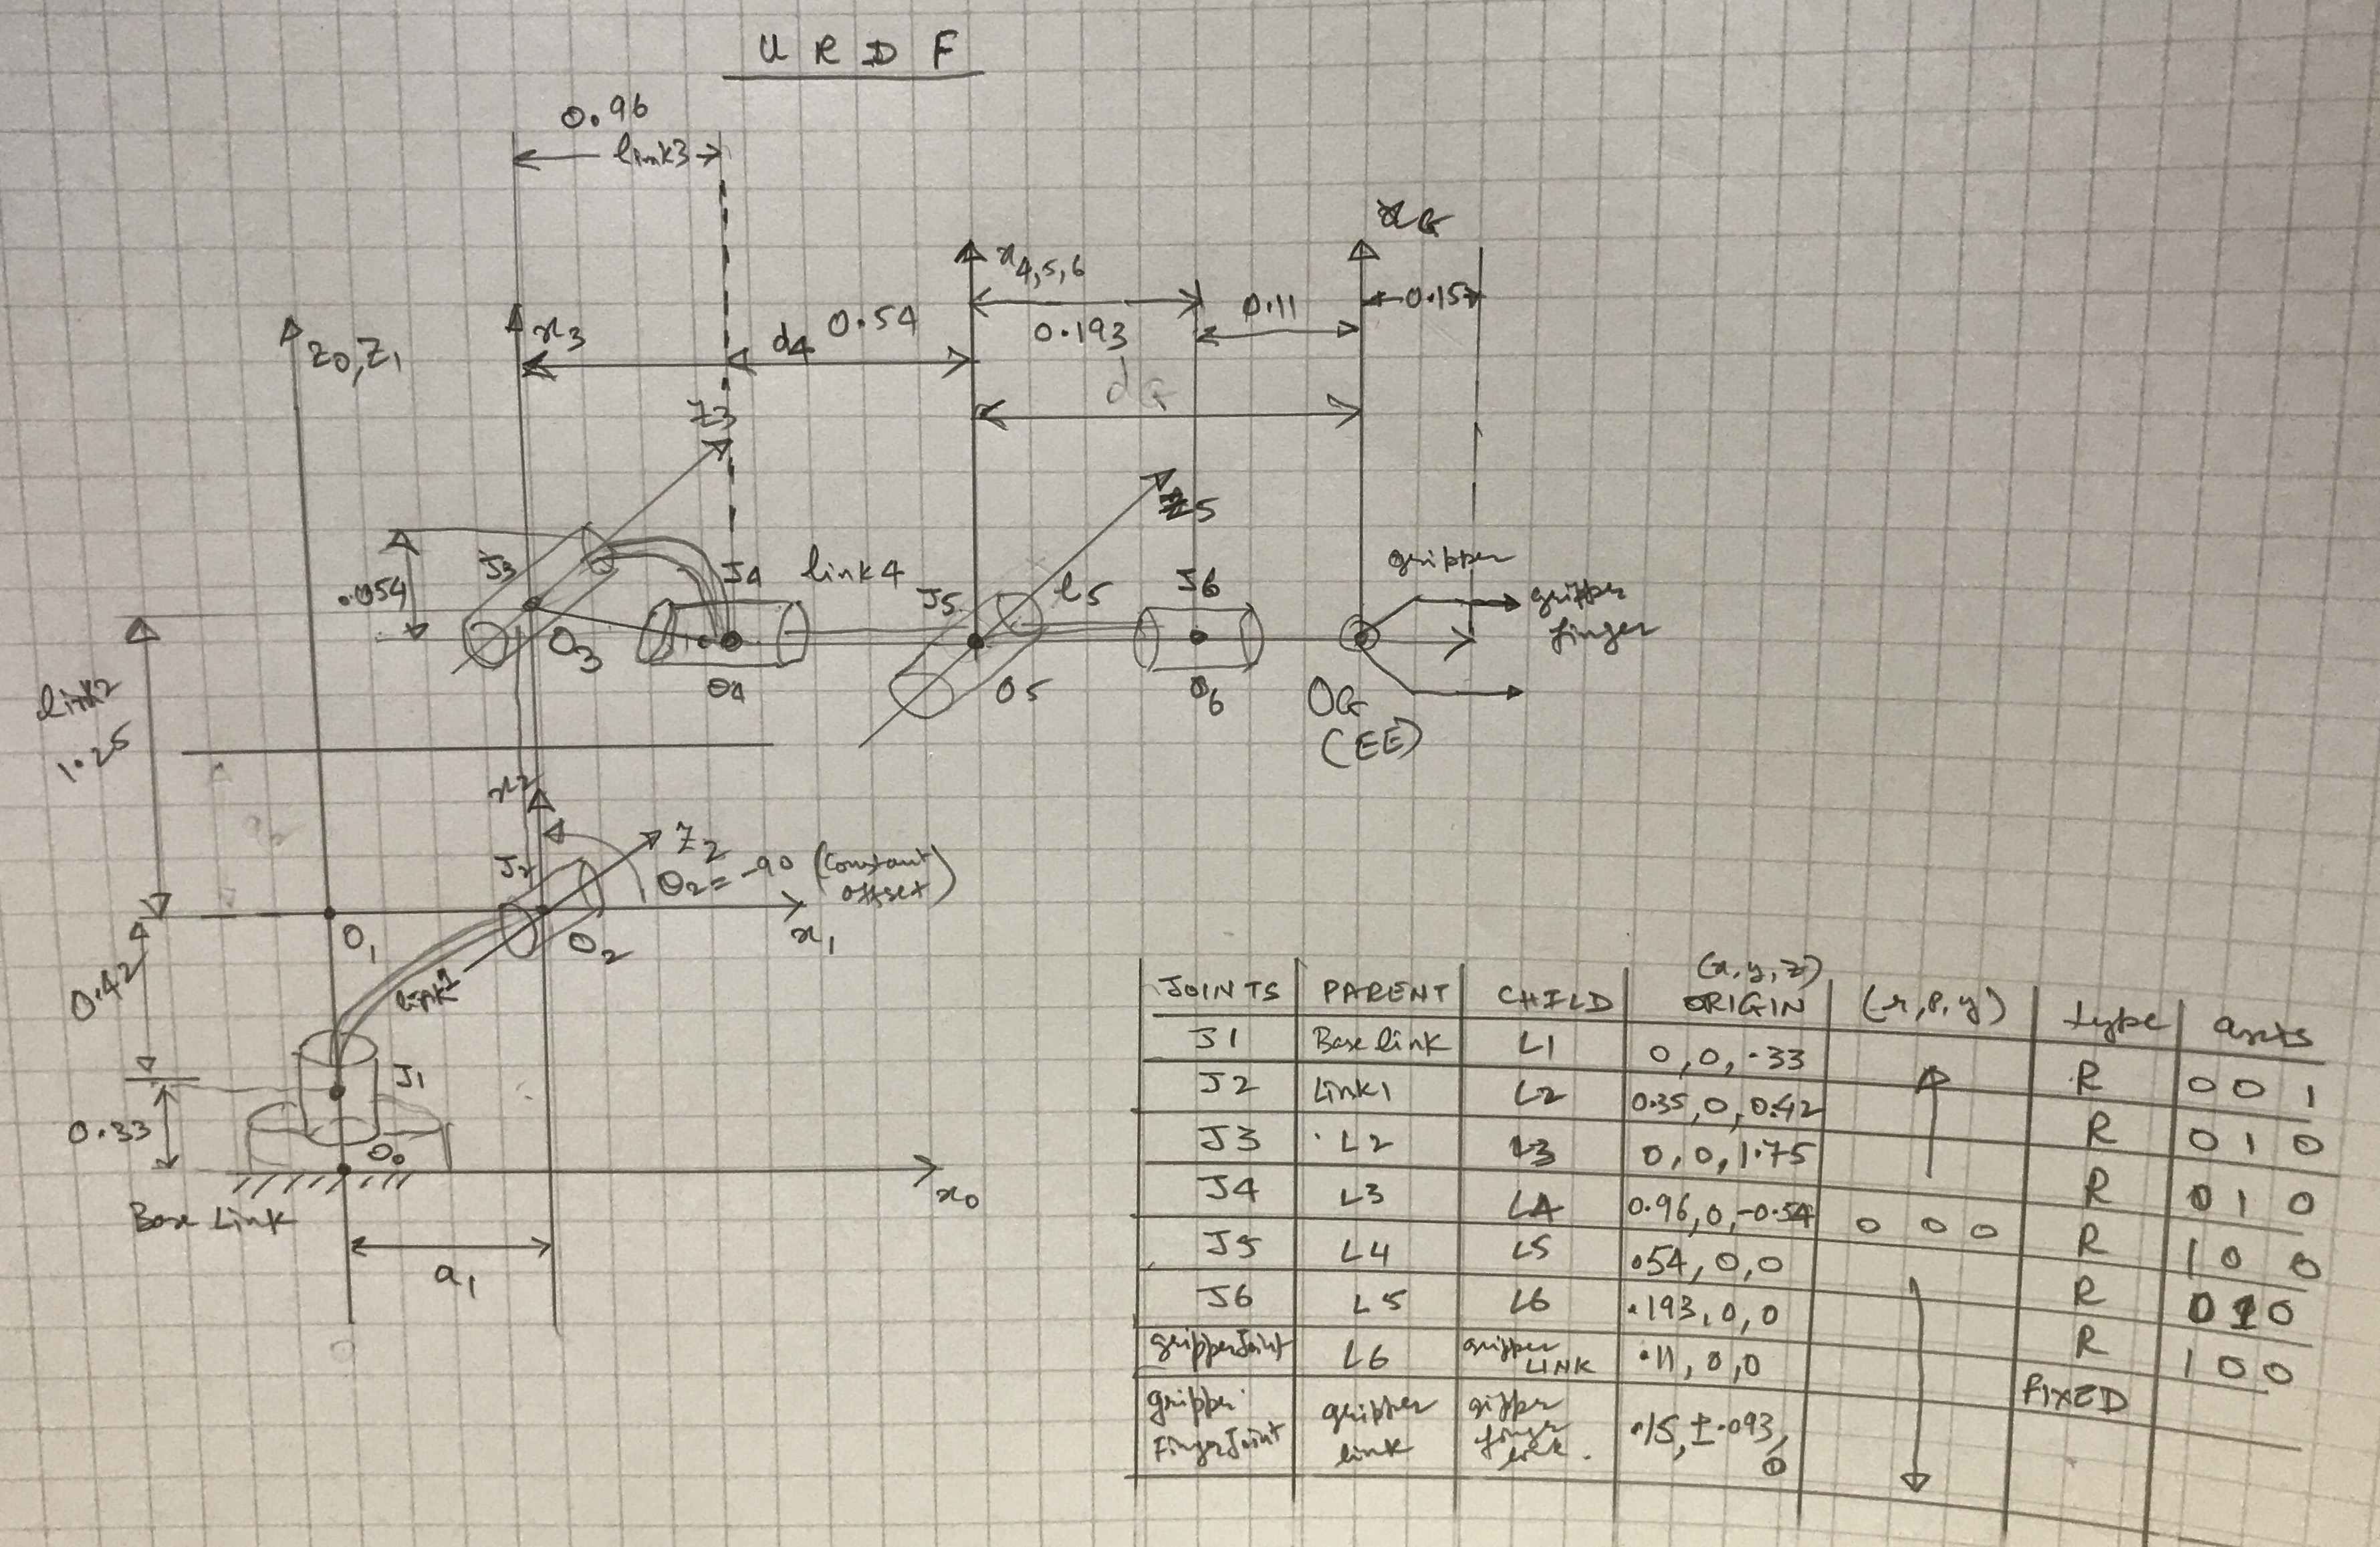 URDF
0.96
link3
x3
Z0,Z1
d4 0.54
x4,5,6
0.193
0.11
xG
0.15
dG
Z3
Z5
.054
J3
O3
J4
link4
O4
J5
l5
O5
J6
O6
gripper
gripper
finger
OG
(EE)
link2
1.25
x2
Z2
J2
θ2=-90 (Constant
offset)
O1
O2
x1
0.42
link1
J1
0.33
O0
x0
Base Link
a1
JOINTS PARENT CHILD (x,y,z) ORIGIN (r,p,y) type axis
J1 Base link L1 0,0,.33 R 0 0 1
J2 Link1 L2 0.35,0,0.42 R 0 1 0
J3 L2 L3 0,0,1.75 R 0 1 0
J4 L3 L4 0.96,0,-0.54 0 0 0 R 1 0 0
J5 L4 L5 .54,0,0 R 0 1 0
J6 L5 L6 .193,0,0 R 1 0 0
gripperJoint L6 gripper LINK .11,0,0 FIXED
gripper FingerJoint gripper link gripper finger link. .15,±.093,0